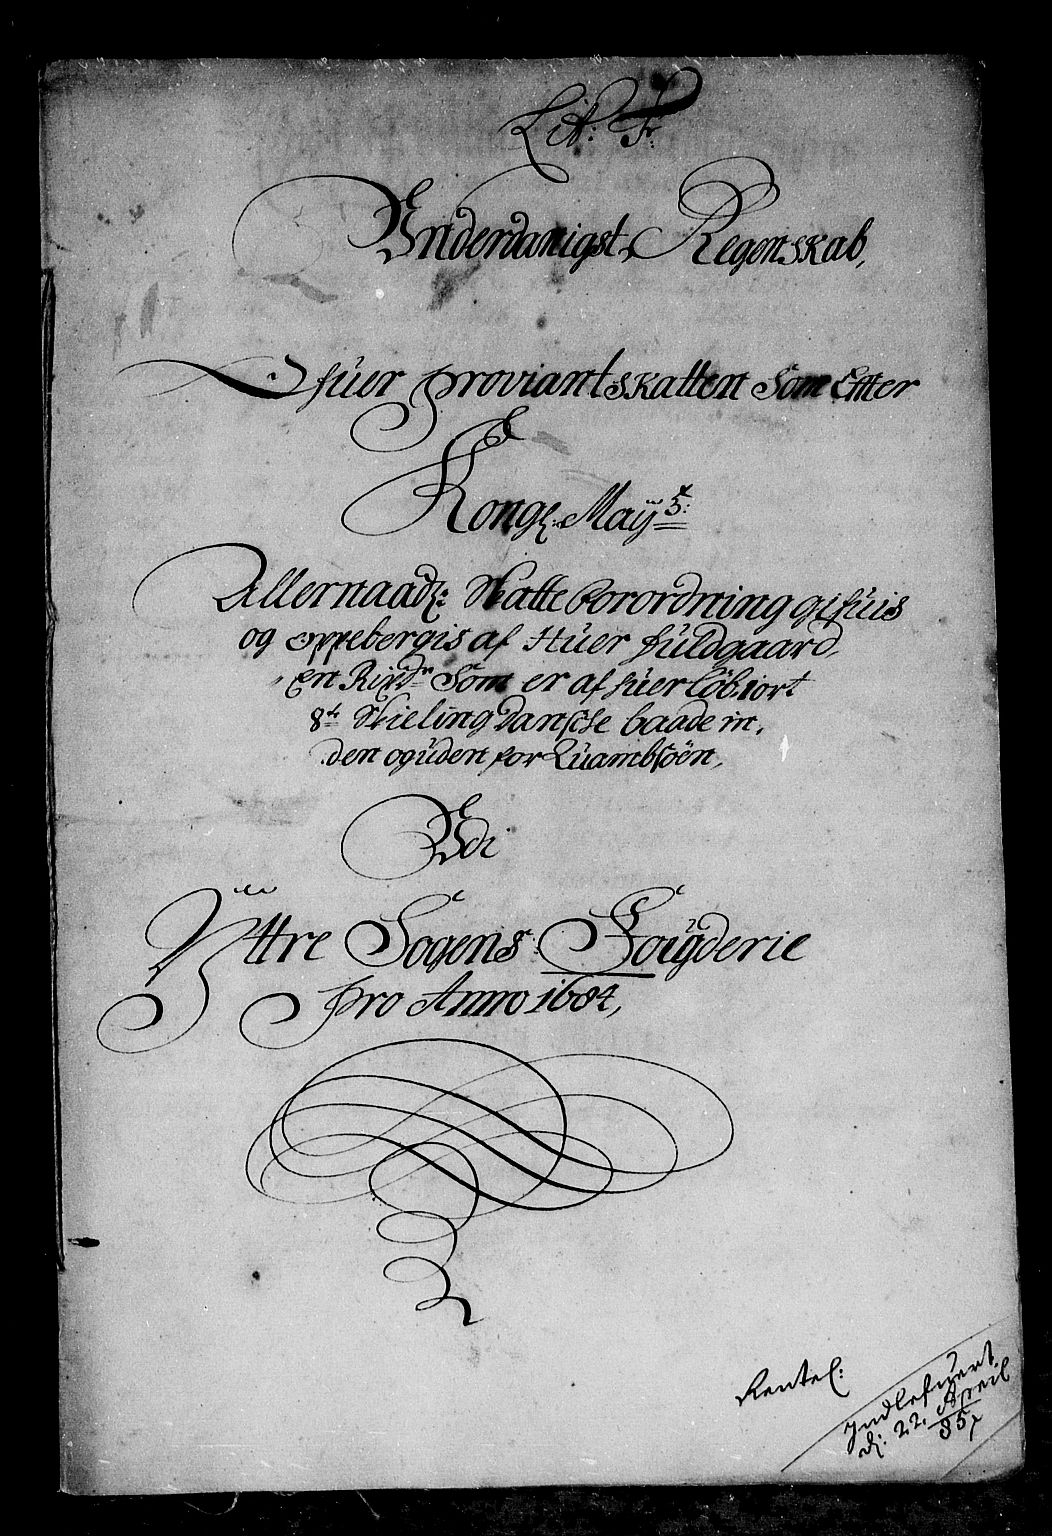 Lit: F.
Underdanigst Regenskab,
Ofuer proviant skatten Som Effter
Kongl: Maÿts:
Allernaadl: Skatte forordning gifuis
og oppebergis af Huer fuldgaard
En Rixdr Som er af huer løb. iort
8te Skieling Dansche baade in,
den og uden for Quambsöen,
Udi
Ÿttre Sogens Fougderie
pro Anno 1684,
Rentel:
Indlefuert
d: 22. Apreil
85,